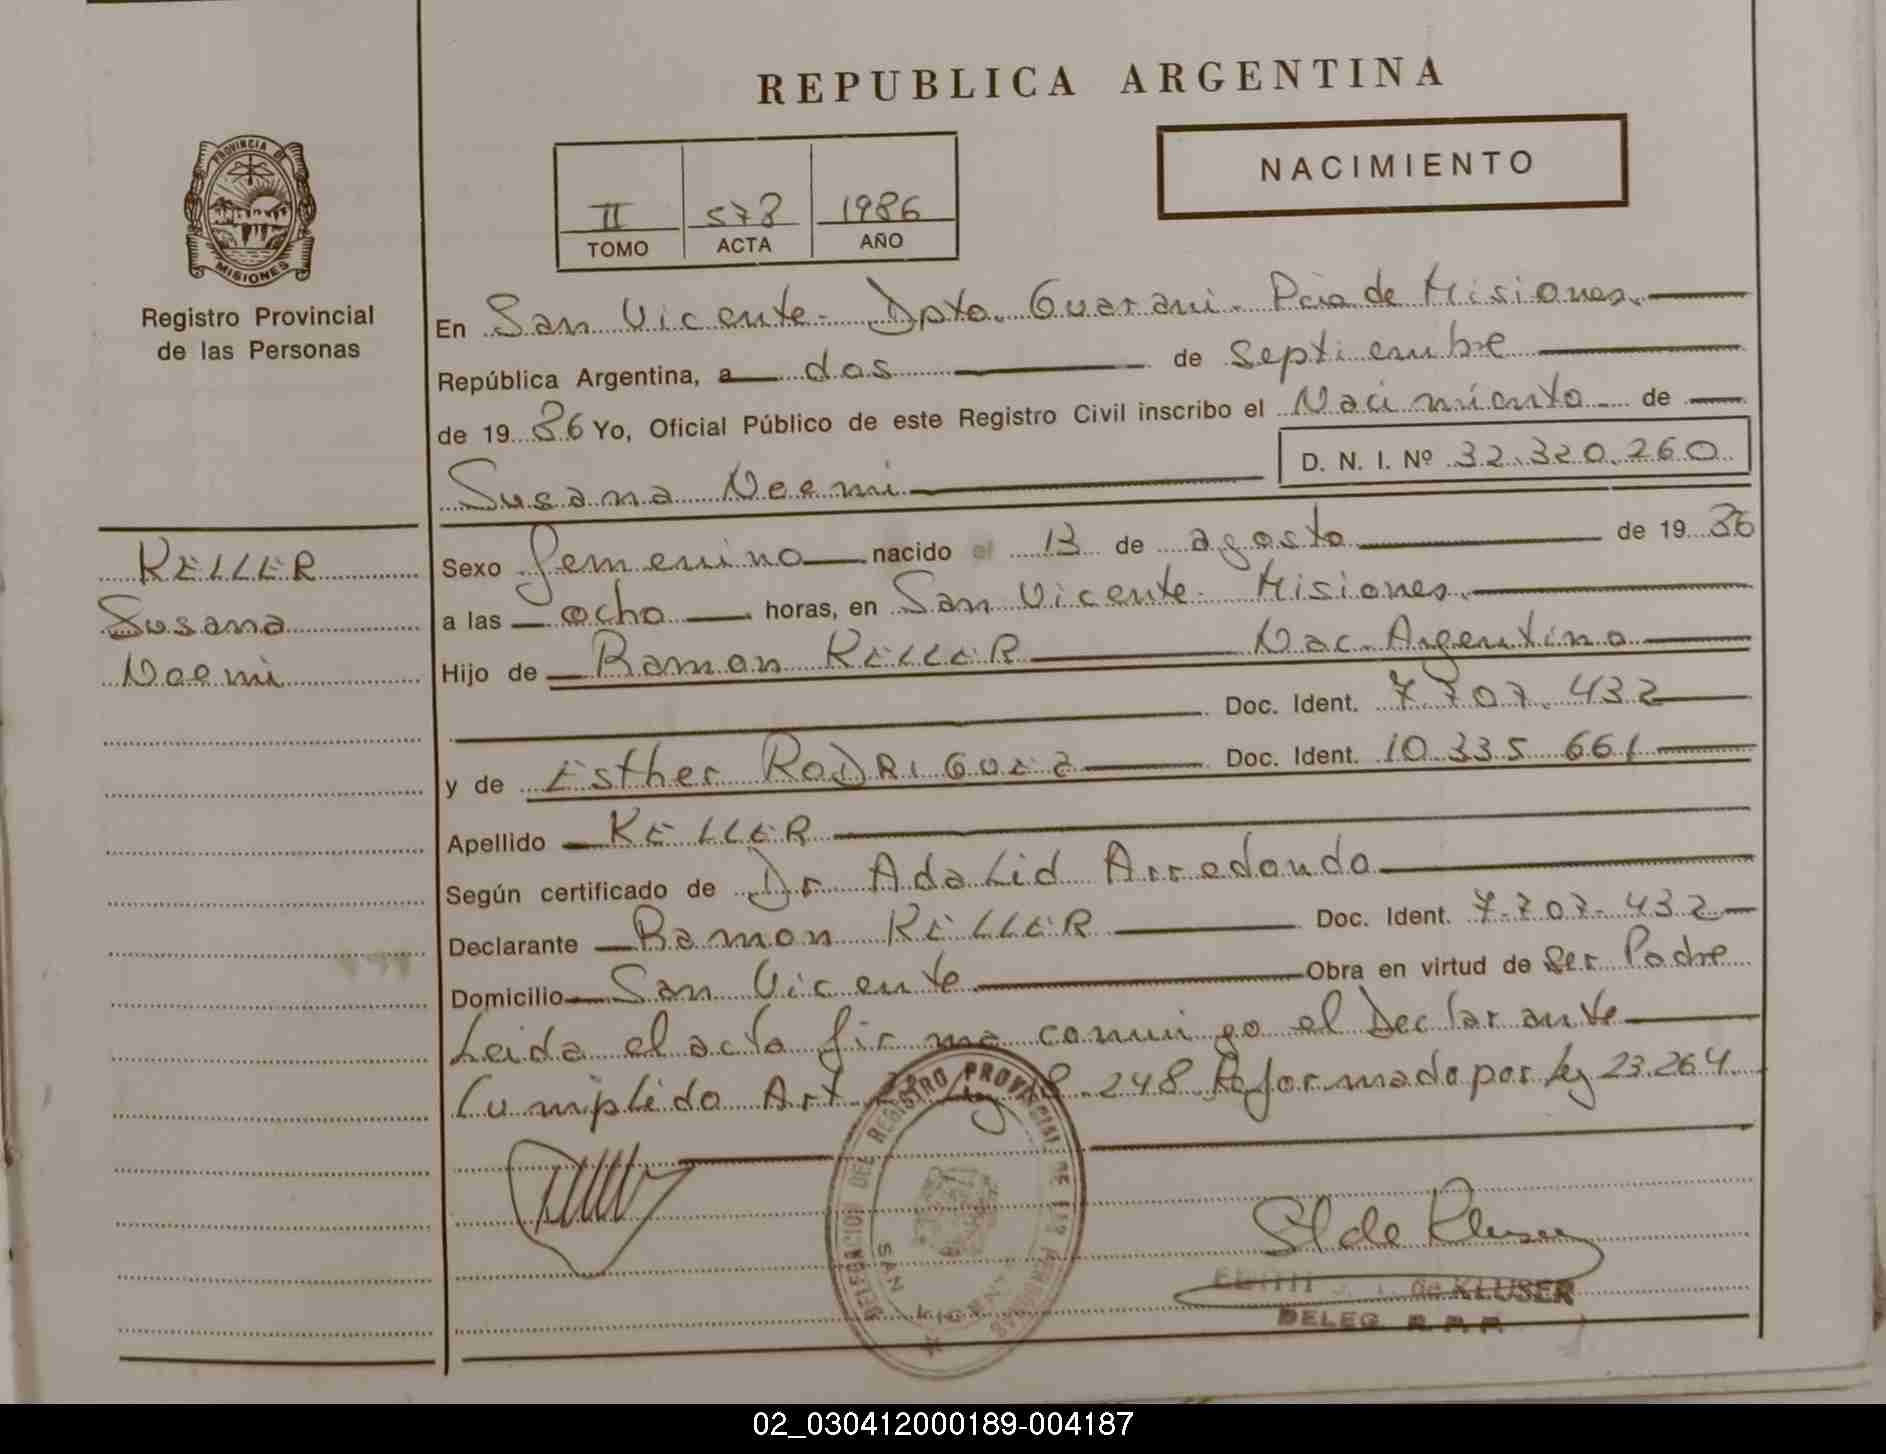 REPUBLICA ARGENTINA
NACIMIENTO
PROVINCIA DE MISIONES
Registro Provincial
de las Personas
II 578 1986
TOMO ACTA AÑO
En San Vicente - Dpto. Guarani - Pcia de Misiones.
República Argentina, a dos de septiembre
de 1986 Yo, Oficial Público de este Registro Civil inscribo el Nacimiento de
Susana Noemi D. N. I. Nº 32.320.260
KELLER
Susana
Noemi
Sexo femenino nacido el 13 de agosto de 1986
a las ocho horas, en San Vicente - Misiones.
Hijo de Ramon KELLER Nac. Argentino
Doc. Ident. 7.707.432
y de Esther RODRIGUEZ Doc. Ident. 10.335.661
Apellido KELLER
Según certificado de Dr Adalid Arredondo
Declarante Ramon KELLER Doc. Ident. 7.707.432
Domicilio San Vicente Obra en virtud de ser Padre
Leida el acta firma conmigo el Declarante
Cumplido Art. Ley 18.248 Reformada por Ley 23.264
DELEGACION DEL REGISTRO PROVINCIAL DE LAS PERSONAS
SAN VICENTE
EDITH de KLUSER
DELEG. R. P. P.
02_030412000189-004187